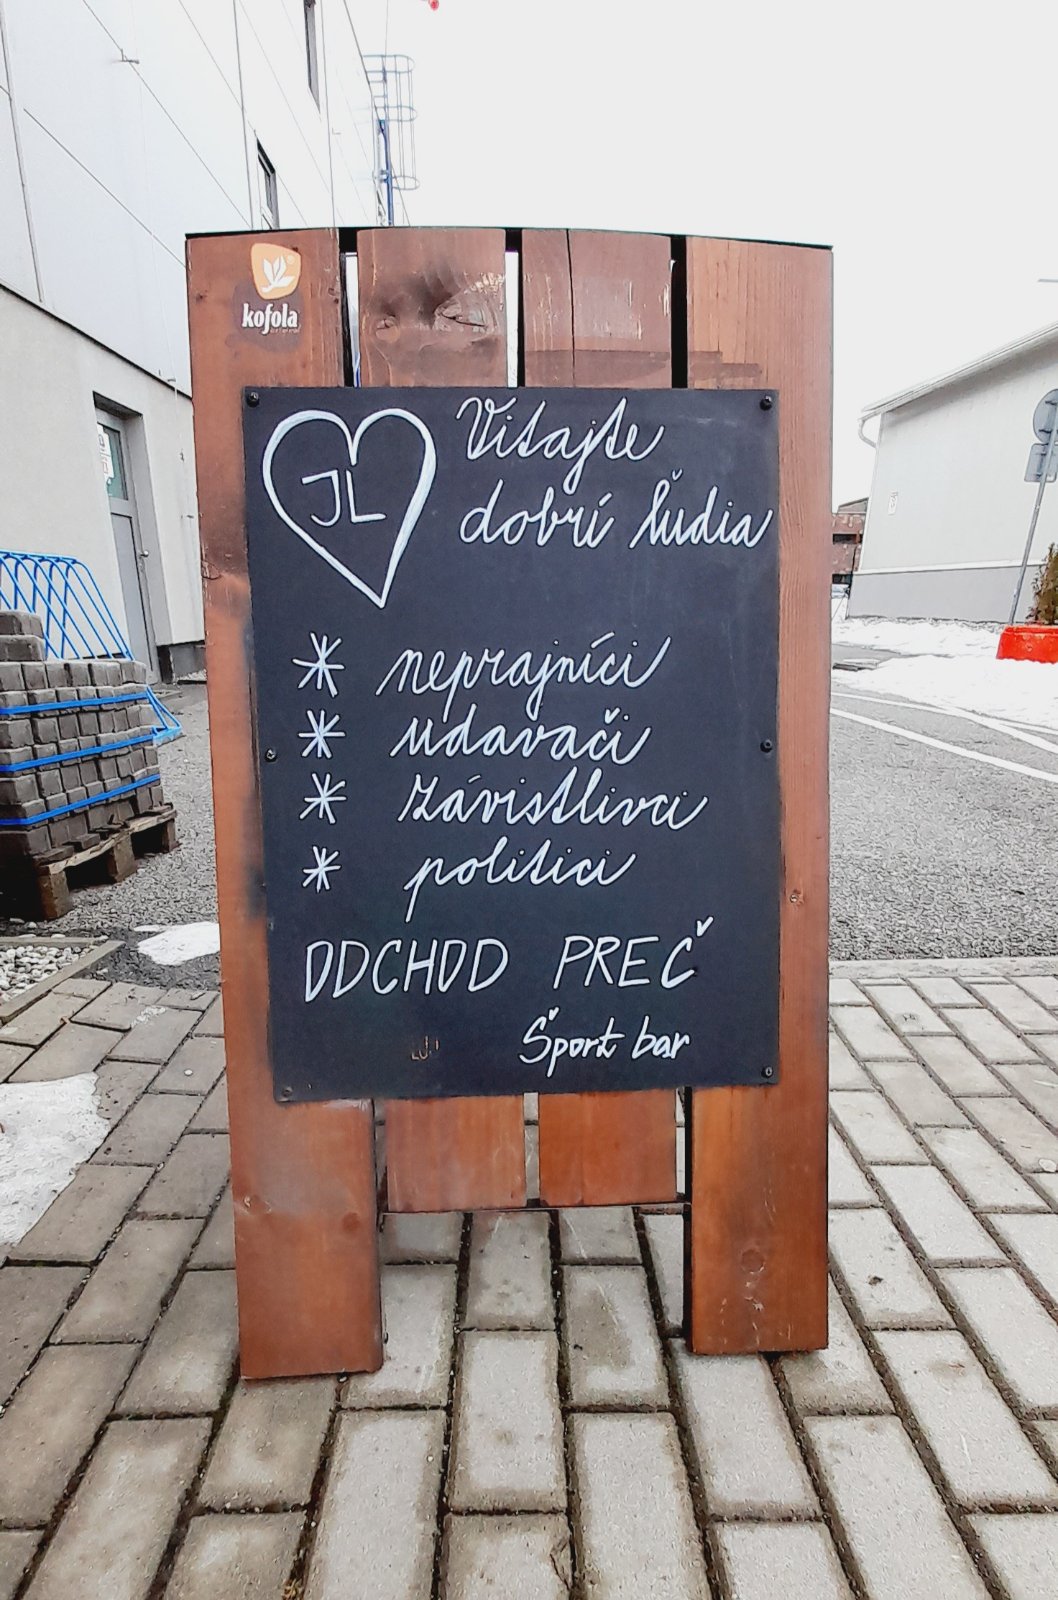 kofola
JL
Vitajte
dobrí ľudia
* neprajníci
* udavači
* závistlivci
* politici
ODCHOD PREČ
Šport bar